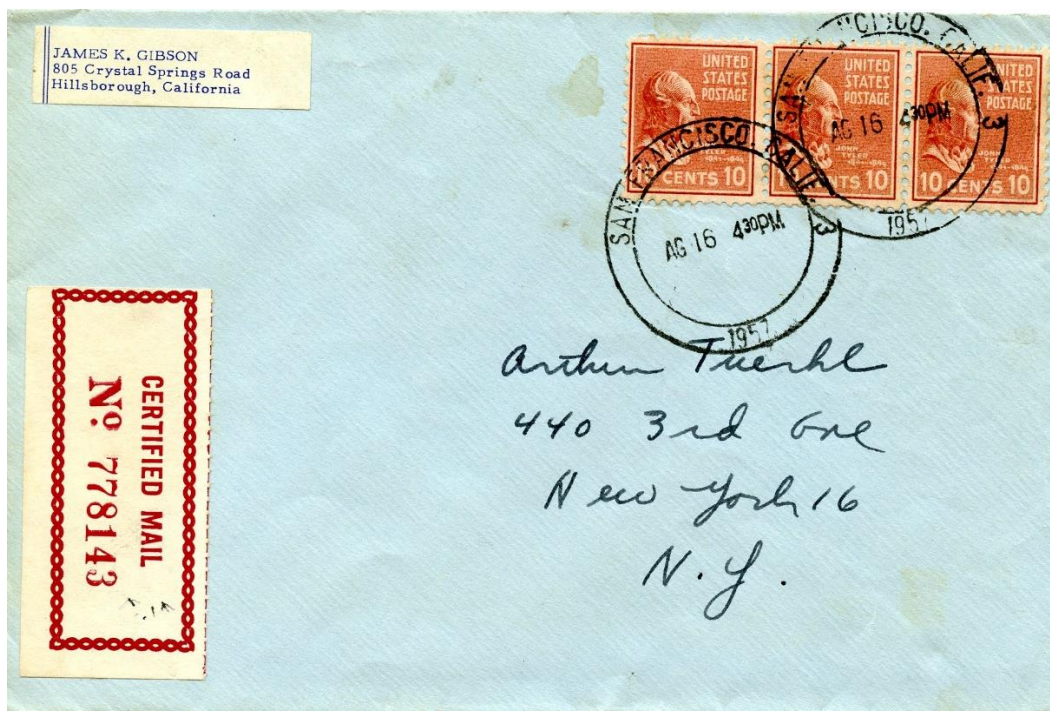 JAMES K. GIBSON
805 Crystal Springs Road
Hillsborough, California
UNITED
STATES
POSTAGE
CENTS 10
UNITED
STATES
POSTAGE
JOHN
TYLER
1841-1845
CENTS 10
UNITED
STATES
POSTAGE
JOHN
TYLER
1841-1845
10 CENTS 10
SAN FRANCISCO, CALIF. 3
AG 16 430PM
1957
SAN FRANCISCO, CALIF. 3
AG 16 430PM
1957
CERTIFIED MAIL
No. 778143
Arthur
440 3rd Ave
New York 16
N.Y.